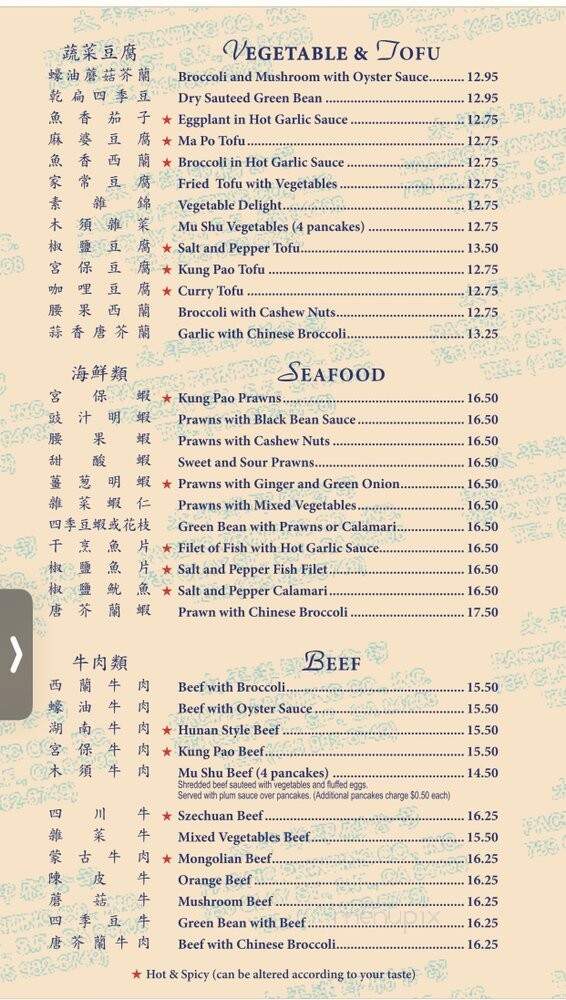 蔬菜豆腐 VEGETABLE & TOFU
蠔油蘑菇芥蘭 Broccoli and Mushroom with Oyster Sauce.......... 12.95
乾扁四季豆 Dry Sauteed Green Bean .......... 12.95
魚香茄子 ★ Eggplant in Hot Garlic Sauce .......... 12.75
麻婆豆腐 ★ Ma Po Tofu.......... 12.75
魚香西蘭 ★ Broccoli in Hot Garlic Sauce .......... 12.75
家常豆腐 Fried Tofu with Vegetables .......... 12.75
素雜錦 Vegetable Delight.......... 12.75
木須雜菜 Mu Shu Vegetables (4 pancakes) .......... 12.75
椒鹽豆腐 ★ Salt and Pepper Tofu.......... 13.50
宮保豆腐 ★ Kung Pao Tofu .......... 12.75
咖哩豆腐 ★ Curry Tofu .......... 12.75
腰果西蘭 Broccoli with Cashew Nuts.......... 12.75
蒜香唐芥蘭 Garlic with Chinese Broccoli.......... 13.25
海鮮類 SEAFOOD
宮保蝦 ★ Kung Pao Prawns.......... 16.50
豉汁明蝦 Prawns with Black Bean Sauce .......... 16.50
腰果蝦 Prawns with Cashew Nuts .......... 16.50
甜酸蝦 Sweet and Sour Prawns.......... 16.50
薑蔥明蝦 ★ Prawns with Ginger and Green Onion.......... 16.50
雜菜蝦仁 Prawns with Mixed Vegetables.......... 16.50
四季豆蝦或花枝 Green Bean with Prawns or Calamari.......... 16.50
干烹魚片 ★ Filet of Fish with Hot Garlic Sauce.......... 16.50
椒鹽魚片 ★ Salt and Pepper Fish Filet.......... 16.50
椒鹽魷魚 ★ Salt and Pepper Calamari .......... 16.50
唐芥蘭蝦 Prawn with Chinese Broccoli .......... 17.50
牛肉類 BEEF
西蘭牛肉 Beef with Broccoli.......... 15.50
蠔油牛肉 Beef with Oyster Sauce .......... 15.50
湖南牛肉 ★ Hunan Style Beef .......... 15.50
宮保牛肉 ★ Kung Pao Beef.......... 15.50
木須牛肉 Mu Shu Beef (4 pancakes) .......... 14.50
Shredded beef sauteed with vegetables and fluffed eggs.
Served with plum sauce over pancakes. (Additional pancakes charge $0.50 each)
四川牛 ★ Szechuan Beef.......... 16.25
雜菜牛 Mixed Vegetables Beef.......... 15.50
蒙古牛肉 ★ Mongolian Beef.......... 16.25
陳皮牛 Orange Beef .......... 16.25
蘑菇牛 Mushroom Beef .......... 16.25
四季豆牛 Green Bean with Beef.......... 16.25
唐芥蘭牛肉 Beef with Chinese Broccoli.......... 16.25
menupix
★ Hot & Spicy (can be altered according to your taste)